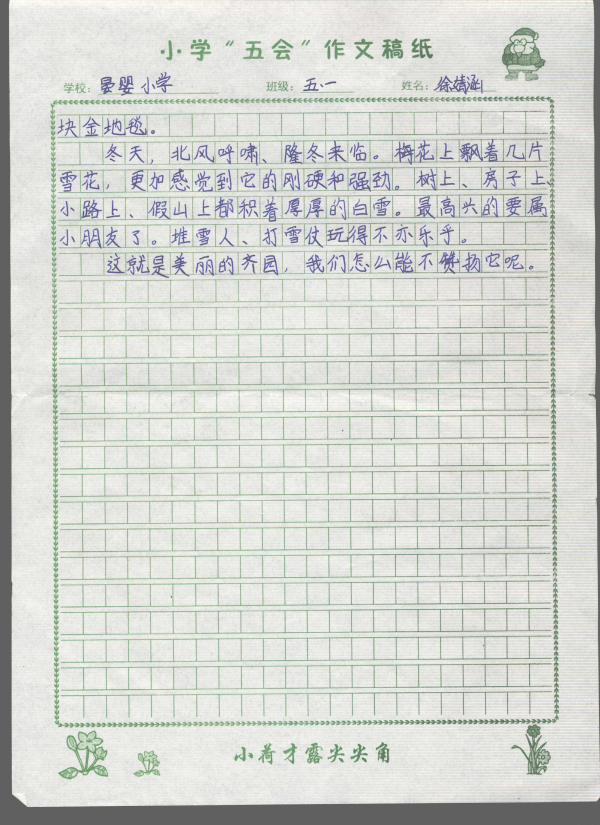 小学“五会”作文稿纸
学校：晏婴小学 班级：五·一 姓名：徐婧涵
块金地毯。
冬天，北风呼啸、隆冬来临。梅花上飘着几片
雪花，更加感觉到它的刚硬和强劲。树上、房子上、
小路上、假山上都积着厚厚的白雪。最高兴的要属
小朋友了。堆雪人、打雪仗玩得不亦乐乎。
这就是美丽的齐园，我们怎么能不赞扬它呢。
小荷才露尖尖角